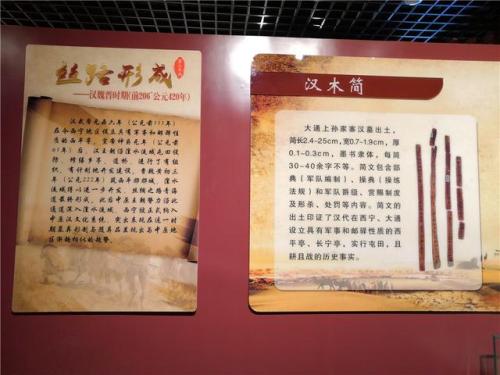 丝路形成
——汉魏晋时期(前206~公元420年)
汉武帝元鼎六年（公元前111年）
在今西宁地区设立具有军事和邮驿性
质的西平亭。宣帝神爵元年（公元前
61年）后，汉王朝沿湟水流域屯田设
防，修缮乡亭、道桥，进行了有组
织、有计划地开发建设。曹魏黄初三
年（公元222年）筑西平郡郡城，湟水
流域得以进一步开发，丝绸之路青海
道最终形成。此后中原王朝势力沿此
汉木简
大通上孙家寨汉墓出土，
简长2.4-25cm，宽0.7-1.9cm，厚
0.1-0.3cm，墨书隶体，每简
30-40余字不等。简文包含部
典（军队编制）、操典（操练
法规）和军队爵级、赏赐制度
及形杀、处罚等内容。简文的
出土印证了汉代在西宁、大通
设立具有军事和邮驿性质的西
平亭、长宁亭，实行屯田，且
耕且战的历史事实。